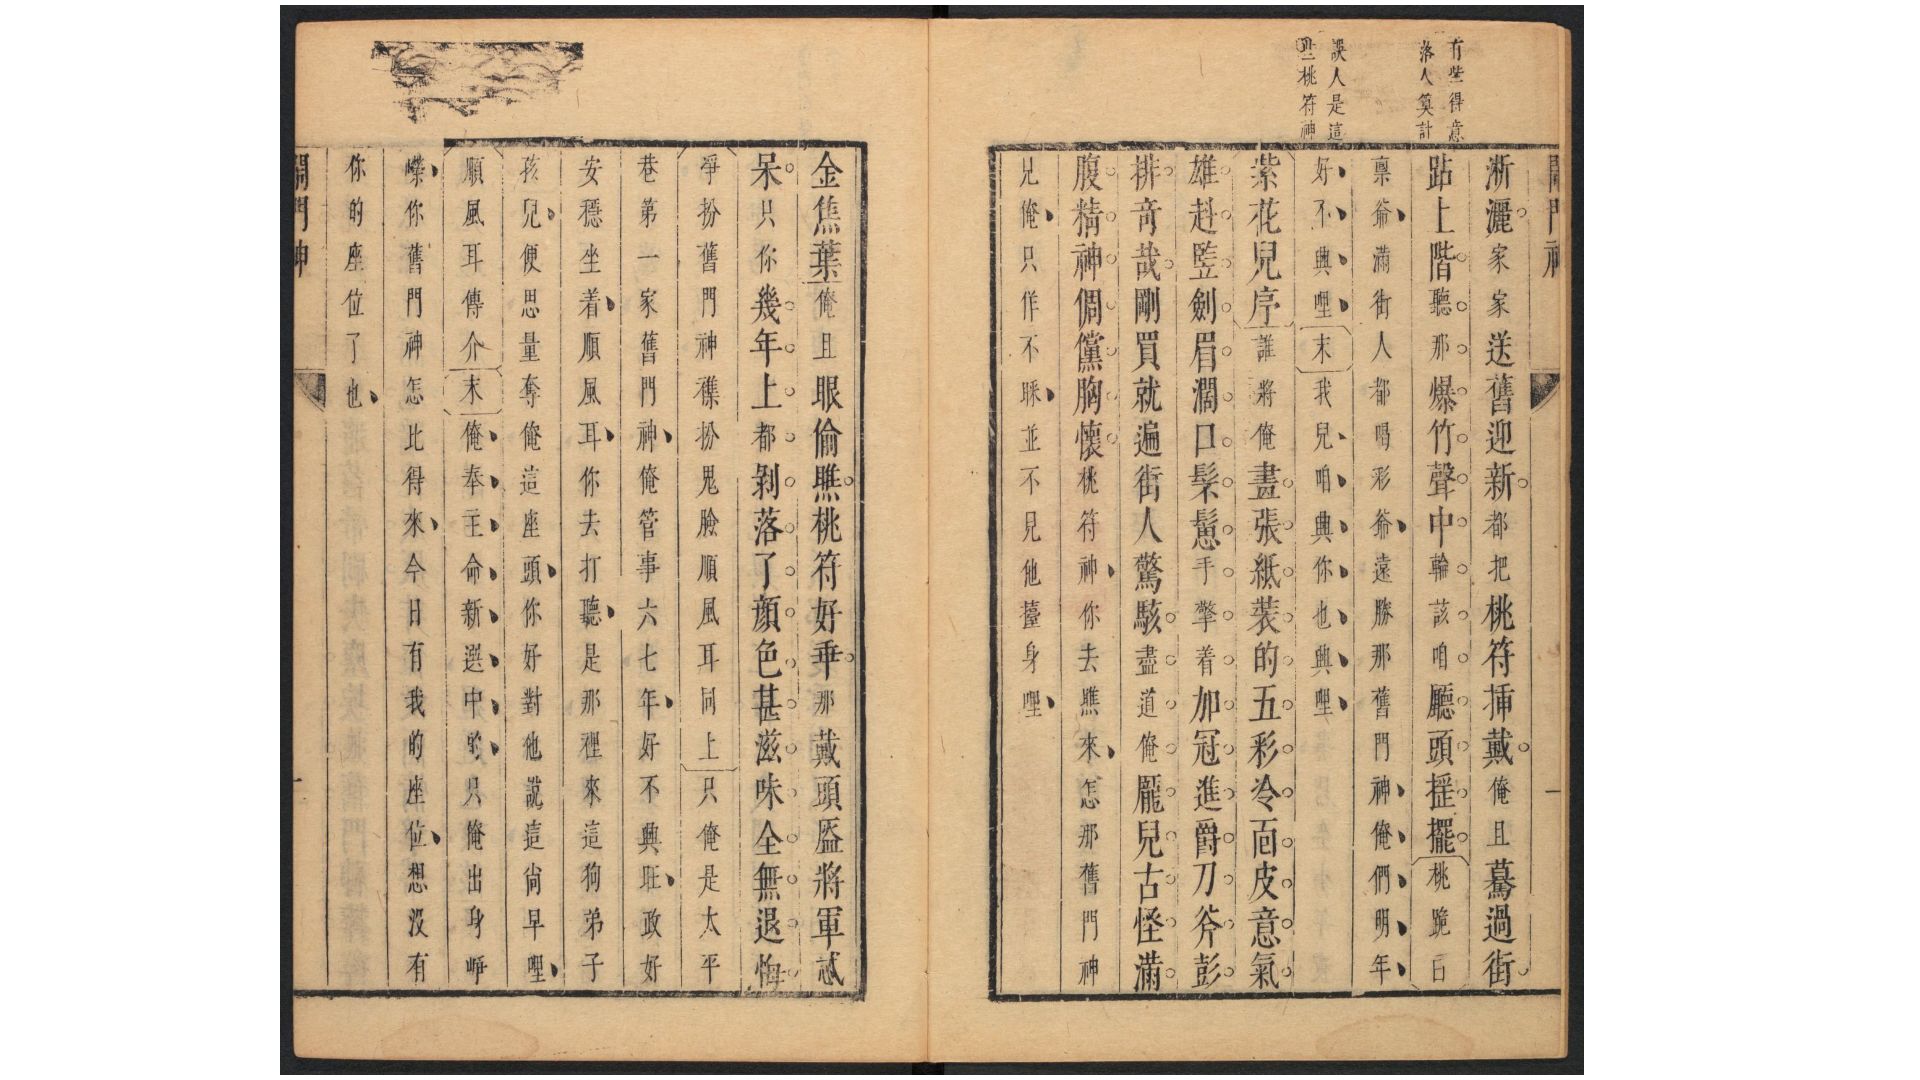 有些得意
落人筭計
誤人是這
些桃符神
鬧門神
淅灑家家送舊迎新都把桃符挿戴俺且驀過街
跕上階聽那爆竹聲中輪該咱廳頭搖擺桃跪曰
稟爺滿街人都喝彩爺遠勝那舊門神俺們明年
好不興哩末我兒咱興你也興哩
紫花兒序誰將俺畫張紙裝的五彩冷面皮意氣
雄赳豎劍眉濶口髼鬆手擎着加冠進爵刀斧彭
排奇哉剛買就遍街人驚駭盡道俺龎兒古怪滿
腹精神倜儻胸懷桃符神你去瞧來怎那舊門神
見俺只作不睬並不見他擡身哩
金焦葉俺且眼偷瞧桃符好乖那戴頭盔將軍忒
呆只你幾年上都剝落了顔色甚滋味全無退悔
爭扮舊門神襍扮鬼臉順風耳同上只俺是太平
巷第一家舊門神俺管事六七年好不興旺政好
安穩坐着順風耳你去打聽是那裡來這狗弟子
孩兒便思量奪俺這座頭你好對他說這尙早哩
順風耳傳介末俺奉主命新選中的只俺出身崢
嶸你舊門神怎比得來今日有我的座位想没有
你的座位了也
鬧門神
一